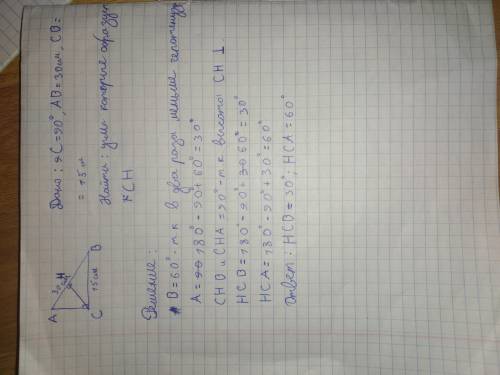 Дано: ∢C=90°, AB=30см, CB=
= 15 см
Найти: углы которые образует
∢CH
A
H
B
C
30 см
15 см
Решение:
B=60° - т.к в два раза меньше гипотенузы
A= 180° - 90+60°=30°
CHB и CHA=90° - т.к высоты CH ⊥
HCB=180° - 90° - 60°=30°
HCA=180° - 90+30°=60°
Ответ: HCB=30°; HCA=60°